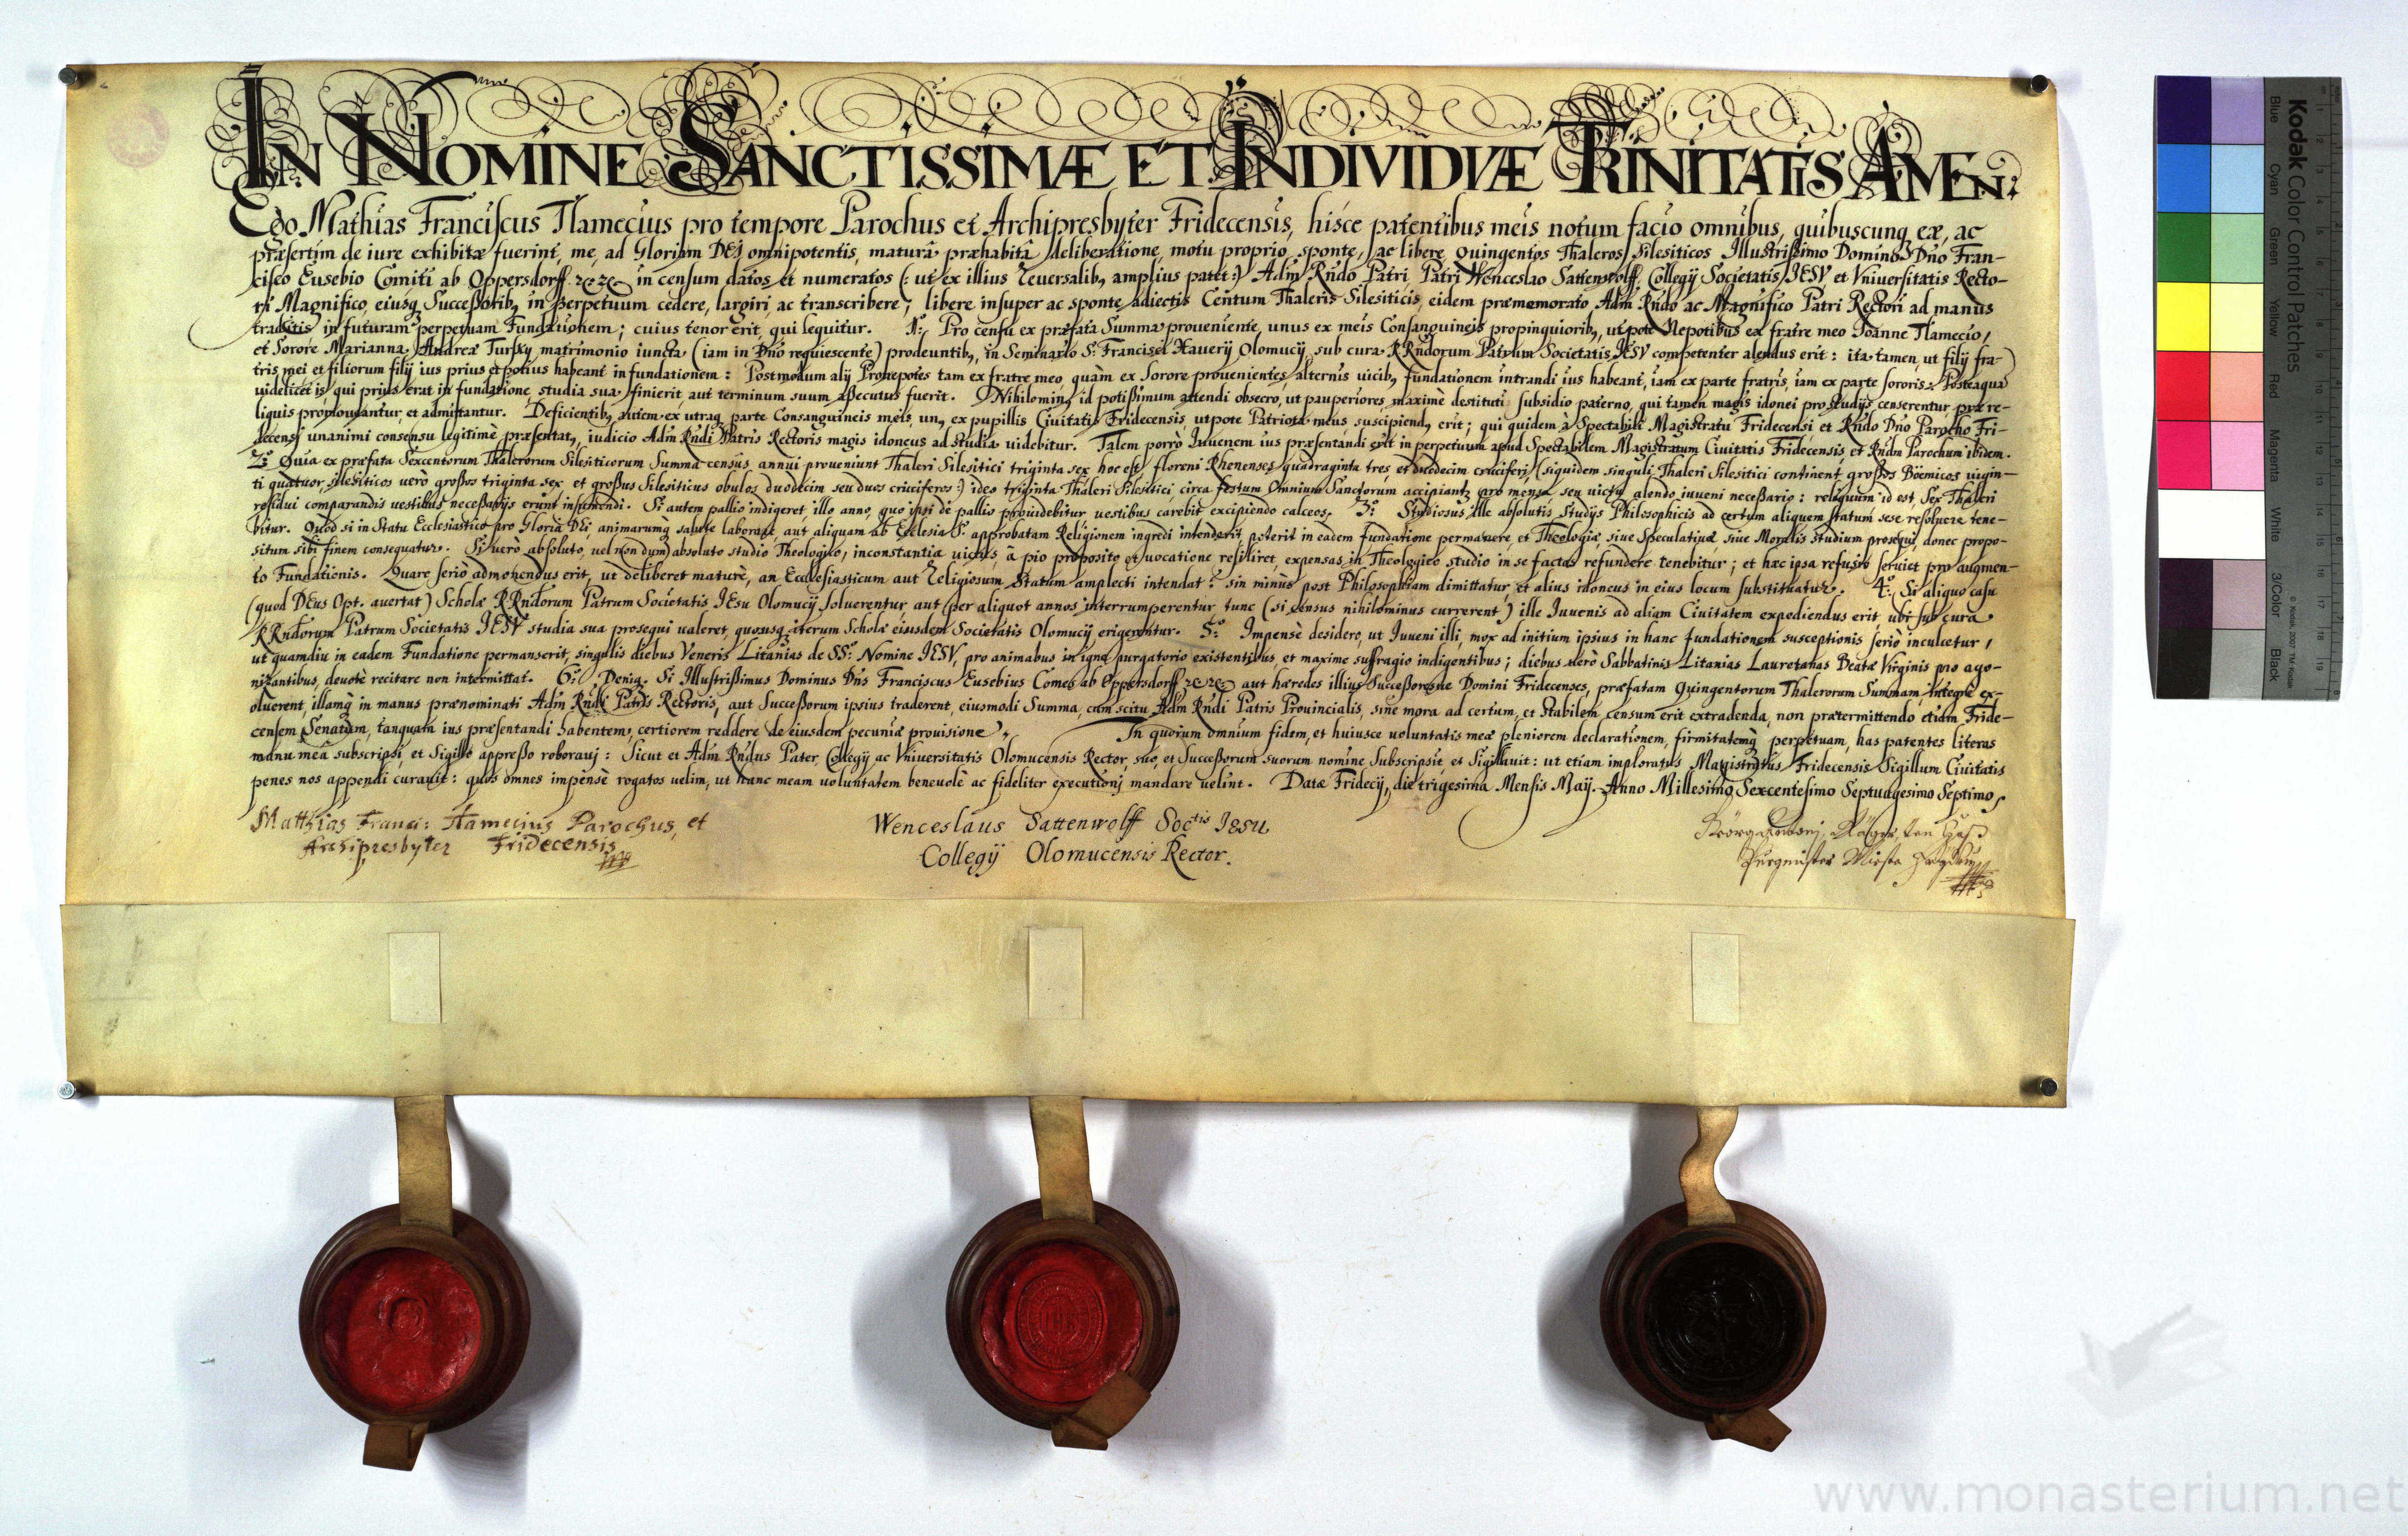 IN NOMINE SANCTISSIMÆ ET INDIVIDVÆ TRINITATIS AMEN:
Ego Mathias Franciscus Tlamecius pro tempore Parochus et Archipresbyter Fridecensis, hisce patentibus meis notum facio omnibus, quibuscunq eæ, ac
præsertim de iure exhibitæ fuerint, me, ad Gloriam DEJ omnipotentis, maturâ præhabitâ deliberatione, motu proprio, sponte, ac libere Quingentos Thaleros Silesiticos Illustrissimo Domino Dño Fran-
cisco Eusebio Comiti ab Oppersdorff &c &c in censum datos et numeratos (: ut ex illius Reversalib, amplius patet :) Adm Rńdo Patri, Patri Wenceslao Sattenwolff, Collegij Societatis JESV et Vniversitatis Recto-
ri Magnifico, eiusq Successorib, in perpetuum cedere, largiri, ac transcribere; libere insuper ac sponte adiectis Centum Thaleris Silesiticis, eidem præmemorato Adm Rńdo ac Magnifico Patri Rectori ad manus
traditis in futuram perpetuam Fundationem; cuius tenor erit, qui sequitur. 1º: Pro censu ex præfata Summa proueniente, unus ex meis Consanguineis propinquiorib, utpote Nepotibus ex fratre meo Joanne Tlamecio,
et Sorore Marianna, Andreæ Tursky matrimonio iuncta (iam in Dño requiescente) prodeuntib, in Seminario S. Francisci Xauerij Olomucij sub cura RRńdorum Patrum Societatis JESV competenter alendus erit: ita tamen, ut filij fra-
tris mei et filiorum filij ius prius et potius habeant in fundationem: Postmodum alij Pronepotes tam ex fratre meo, quàm ex Sorore prouenientes, alternis uicib, fundationem intrandi ius habeant, iam ex parte fratris, iam ex parte sororis. Posteaqua
uidelicet is qui prius erat in fundatione studia sua finierit, aut terminum suum assecutus fuerit. Nihilominq id potissimum attendi obsecro, ut pauperiores, maximè destituti subsidio paterno, qui tamen magis idonei pro studijs censerentur, præ re-
liquis promoueantur, et admittantur. Deficientib, autem ex utraq parte Consanguineis meis, un, ex pupillis Ciuitatis Fridecensis, utpote Patriota meus suscipiend, erit; qui quidem à Spectabili Magistratu Fridecensi et Rńdo Dño Parocho Fri-
decensi unanimi consensu legitimè præsentat, iudicio Adm Rńdi Patris Rectoris magis idoneus ad studia uidebitur. Talem porrò Iuuenem ius præsentandi erit in perpetuum apud Spectabilem Magistratum Ciuitatis Fridecensis, et Rńdm Parochum ibidem.
2º: Quia ex præfata Sexcentorum Thalerorum Silesiticorum Summa census annui proueniunt Thaleri Silesitici triginta sex, hoc est, floreni Rhenenses quadraginta tres, et duodecim cruciferi, (siquidem singuli Thaleri Silesitici continent grossos Böemicos uigin-
ti quatuor, silesiticos uerò grossos triginta sex et grossus Silesiticus obulos duodecim seu duos cruciferos:) ideo triginta Thaleri Silesitici circa festum Omnium Sanctorum accipiantz pro mensa, seu uictu alendo iuueni necessario: reliquum id est, Sex Thaleri
residui comparandis uestibus necessarijs erunt insumendi. Si autem pallio indigeret, illo anno, quo ipsi de pallio prouidebitur uestibus carebit excipiendo calceos. 3º: Studiosus ille absolutis Studijs Philosophicis ad certum aliquem statum sese resoluere tene-
bitur. Quòd si in Statu Ecclesiastico pro Gloria Dei, animarumq salute laborare, aut aliquam ab Ecclesia S. approbatam Religionem ingredi intenderit, poterit in eadem fundatione permanere, et Theologiæ, siue Speculatiuæ, siue Moralis studium prosequi, donec propo-
situm sibi finem consequatur. Si uerò absoluto, uel nondum absoluto studio Theologico, inconstantia uictus, à pio proposito et uocatione resiliret, expensas in Theologico studio in se factas refundere tenebitur; et hæc ipsa refusio seruiet pro augmen-
to Fundationis. Quare seriò admonendus erit, ut deliberet maturè, an Ecclesiasticum aut Religiosum Statum amplecti intendat? sin minùs post Philosophiam dimittatur, et alius idoneus in eius locum substituatur. 4º: Si aliquo casu
(quod DEus Opt. auertat) Scholæ RRńdorum Patrum Societatis JEsu Olomucij soluerentur, aut per aliquot annos interrumperentur, tunc (si census nihilominus currerent) ille Iuuenis ad aliam Ciuitatem expediendus erit, ubi sub cura
RRńdorum Patrum Societatis JESV studia sua prosequi ualeret, quousq iterum Scholæ eiusdem Societatis Olomucij erigerentur. 5º: Impensè desidero, ut Iuueni illi, mox ad initium ipsius in hanc fundationem susceptionis seriò inculcetur,
ut quamdiu in eadem Fundatione permanserit, singulis diebus Veneris Litanias de SS: Nomine JESV, pro animabus in igne purgatorio existentibus, et maxime suffragio indigentibus; diebus uerò Sabbatinis Litanias Lauretanas Beatæ Virginis pro ago-
nizantibus, deuotè recitare non intermittat. 6º: Deniq. Si Illustrissimus Dominus Dñs Franciscus Eusebius Comes ab Oppersdorff &c &c aut hæredes illius Successoresue Domini Fridecenses, præfatam Quingentorum Thalerorum Summam, integrè ex-
oluerent, illamq in manus prænominati Adm Rńdi Patris Rectoris, aut Successorum ipsius traderent, eiusmodi Summa, cum scitu Adm Rńdi Patris Prouincialis, sine mora ad certum, et Stabilem censum erit extradenda, non prætermittendo etiam Fride-
censem Senatum, tanquam ius præsentandi habentem, certiorem reddere de eiusdem pecuniæ prouisione. In quorum omnium fidem, et huiusce uoluntatis meæ pleniorem declarationem, firmitatemq perpetuam, has patentes literas
manu meâ subscripsi, et Sigillo appresso roboraui: Sicut et Adm Rńdus Pater, Collegij ac Vniuersitatis Olomucensis Rector, suo, et Successorum suorum nomine Subscripsit, et Sigillauit: ut etiam imploratus Magistratus Fridecensis Sigillum Ciuitatis
penes nos appendi curauit: quos omnes impensè rogatos uelim, ut hanc meam uoluntatem beneuolè ac fideliter executionj mandare uelint. Datæ Fridecij, die trigesima Mensis Maij. Anno Millesimo Sexcentesimo Septuagesimo Septimo.
Matthias Franci: Tlamecius Parochus, et
Archipresbyter Fridecensis
Wenceslaus Sattenwolff Soctis Jesu
Collegij Olomucensis Rector.
Purgmistr Miesta
Kodak Color Control Patches
Blue Cyan Green Yellow Red Magenta White 3/Color Black
© Kodak, 2007 TM: Kodak
IHS
www.monasterium.net